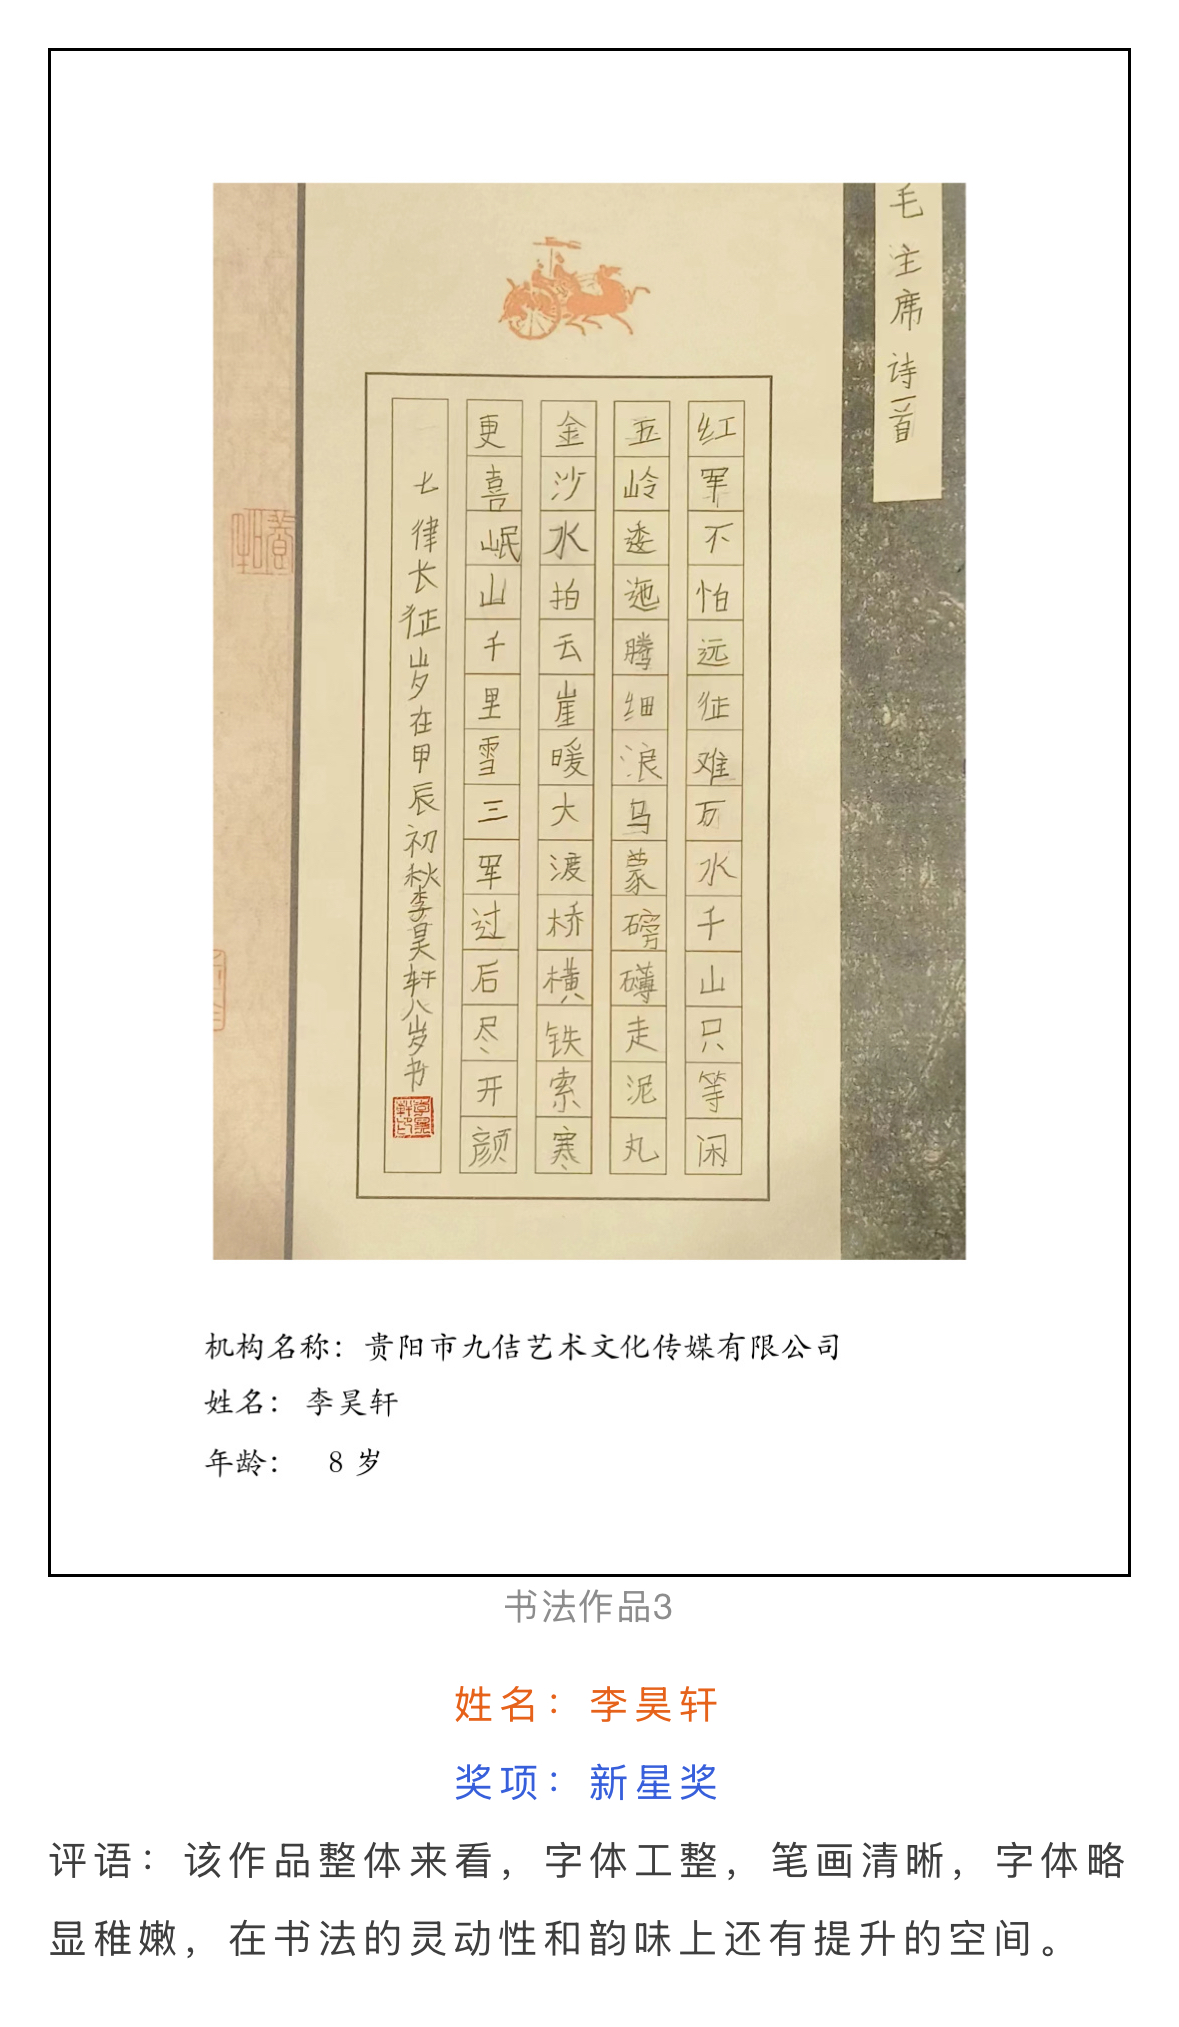 毛主席诗一首
红军不怕远征难万水千山只等闲
五岭逶迤腾细浪乌蒙磅礴走泥丸
金沙水拍云崖暖大渡桥横铁索寒
更喜岷山千里雪三军过后尽开颜
七律长征岁在甲辰初秋李昊轩八岁书
机构名称：贵阳市九佶艺术文化传媒有限公司
姓名：李昊轩
年龄：8 岁
书法作品3
姓名：李昊轩
奖项：新星奖
评语：该作品整体来看，字体工整，笔画清晰，字体略
显稚嫩，在书法的灵动性和韵味上还有提升的空间。